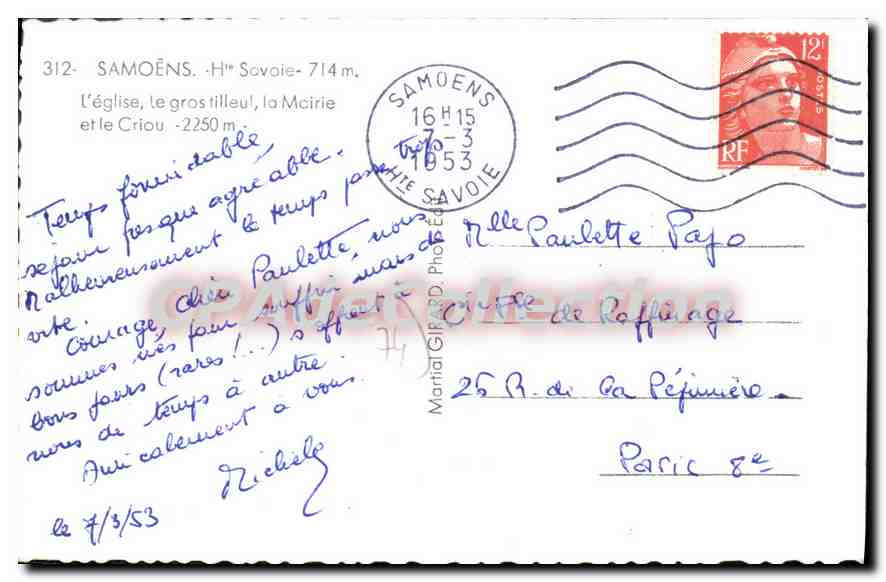 312- SAMOËNS. -Hte Savoie- 714 m.
L'église, le gros tilleul, la Mairie
et le Criou -2250 m-
SAMOENS
16H15
7-3
1953
HTE SAVOIE
12F
POSTES
RF
Temps formidable,
séjour presque agréable.
Malheureusement le temps passe trop
vite.
Courage, chère Paulette, nous
sommes nés pour souffrir mais de
bons jours (rares !...) s'offrent à
nous de temps à autre.
Amicalement à vous.
Michel
le 7/3/53
74
Martial GIRARD. Photo Édit.
Mlle Paulette Pajo
Cie Fse de Raffinage
25 R. de la Pépinière
Paris 8e
CPA Direct Collection